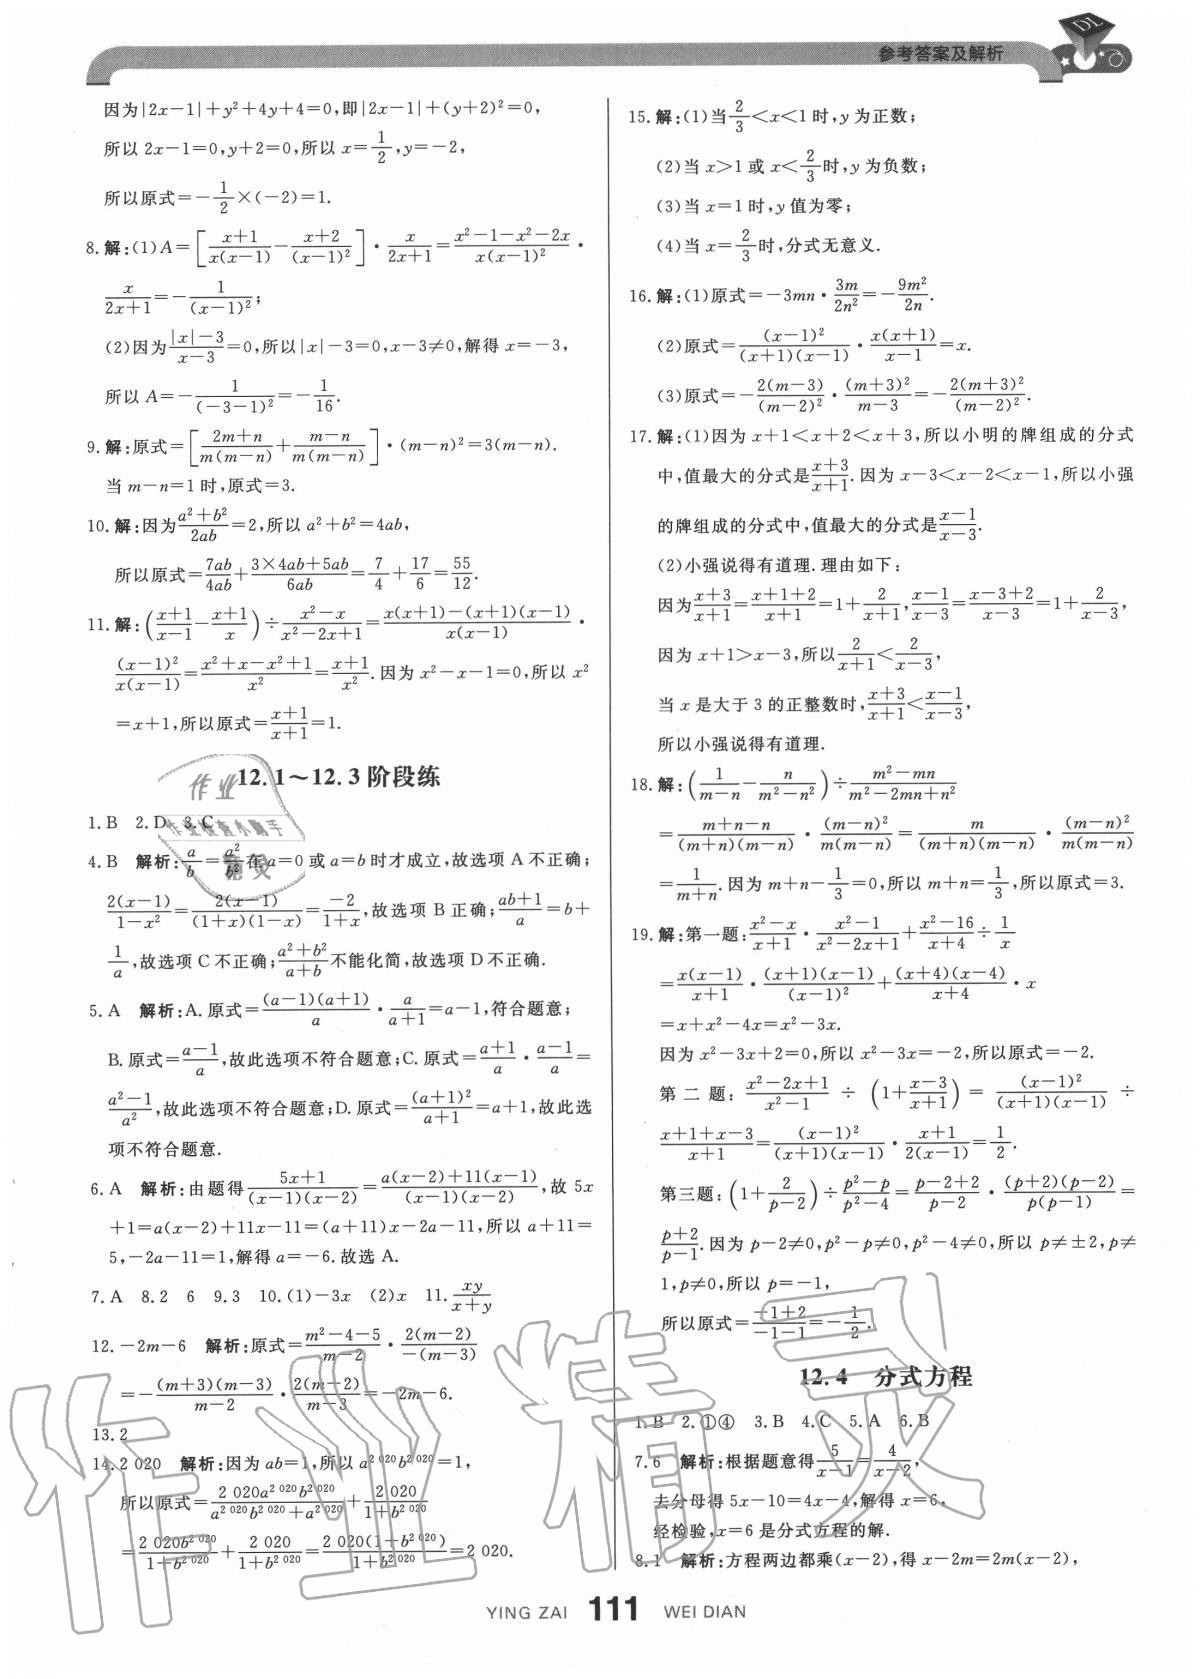 参考答案及解析
DL
因为|2x-1|+y²+4y+4=0,即|2x-1|+(y+2)²=0,
所以 2x-1=0,y+2=0,所以 x=1/2,y=-2,
所以原式=-1/2×(-2)=1.
8.解:(1)A=[(x+1)/(x(x-1))-(x+2)/(x-1)²]·x/(2x+1)=(x²-1-x²-2x)/(x(x-1)²)·
x/(2x+1)=-1/(x-1)²;
(2)因为(|x|-3)/(x-3)=0,所以|x|-3=0,x-3≠0,解得 x=-3,
所以 A=-1/(-3-1)²=-1/16.
9.解:原式=[(2m+n)/(m(m-n))+(m-n)/(m(m-n))]·(m-n)²=3(m-n).
当 m-n=1 时,原式=3.
10.解:因为(a²+b²)/(2ab)=2,所以 a²+b²=4ab,
所以原式=7ab/4ab+(3×4ab+5ab)/6ab=7/4+17/6=55/12.
11.解:((x+1)/(x-1)-(x+1)/x)÷(x²-x)/(x²-2x+1)=(x(x+1)-(x+1)(x-1))/(x(x-1))·
(x-1)²/(x(x-1))=(x²+x-x²+1)/x²=(x+1)/x².因为 x²-x-1=0,所以 x²
=x+1,所以原式=(x+1)/(x+1)=1.
12.1～12.3阶段练
1.B 2.D 3.C
4.B 解析:a/b=a²/b²在 a=0 或 a=b 时才成立,故选项 A 不正确;
2(x-1)/(1-x²)=2(x-1)/((1+x)(1-x))=-2/(1+x),故选项 B 正确;(ab+1)/a=b+
1/a,故选项 C 不正确;(a²+b²)/(a+b)不能化简,故选项 D 不正确.
5.A 解析:A.原式=((a-1)(a+1))/a·a/(a+1)=a-1,符合题意;
B.原式=(a-1)/a,故此选项不符合题意;C.原式=(a+1)/a·(a-1)/a=
(a²-1)/a²,故此选项不符合题意;D.原式=(a+1)²/(a+1)=a+1,故此选
项不符合题意.
6.A 解析:由题得(5x+1)/((x-1)(x-2))=(a(x-2)+11(x-1))/((x-1)(x-2)),故 5x
+1=a(x-2)+11x-11=(a+11)x-2a-11,所以 a+11=
5,-2a-11=1,解得 a=-6.故选 A.
7.A 8.2 6 9.3 10.(1)-3x (2)x 11.xy/(x+y)
12.-2m-6 解析:原式=(m²-4-5)/(m-2)·2(m-2)/(-(m-3))
=-((m+3)(m-3))/(m-2)·2(m-2)/(m-3)=-2m-6.
13.2
14.2 020 解析:因为 ab=1,所以 a^2 020 b^2 020=1,
所以原式=2 020a^2 020 b^2 020/(a^2 020 b^2 020+a^2 020)+2 020/(1+b^2 020)
=2 020b^2 020/(1+b^2 020)+2 020/(1+b^2 020)=2 020(1+b^2 020)/(1+b^2 020)=2 020.
15.解:(1)当2/3<x<1 时,y 为正数;
(2)当 x>1 或 x<2/3时,y 为负数;
(3)当 x=1 时,y 值为零;
(4)当 x=2/3时,分式无意义.
16.解:(1)原式=-3mn·3m/2n²=-9m²/2n.
(2)原式=(x-1)²/((x+1)(x-1))·x(x+1)/(x-1)=x.
(3)原式=-2(m-3)/(m-2)²·(m+3)²/(m-3)=-2(m+3)²/(m-2)².
17.解:(1)因为 x+1<x+2<x+3,所以小明的牌组成的分式
中,值最大的分式是(x+3)/(x+1).因为 x-3<x-2<x-1,所以小强
的牌组成的分式中,值最大的分式是(x-1)/(x-3).
(2)小强说得有道理.理由如下:
因为(x+3)/(x+1)=(x+1+2)/(x+1)=1+2/(x+1),(x-1)/(x-3)=(x-3+2)/(x-3)=1+2/(x-3),
因为 x+1>x-3,所以2/(x+1)<2/(x-3),
当 x 是大于 3 的正整数时,(x+3)/(x+1)<(x-1)/(x-3),
所以小强说得有道理.
18.解:(1/(m-n)-n/(m²-n²))÷(m²-mn)/(m²-2mn+n²)
=(m+n-n)/((m+n)(m-n))·(m-n)²/(m(m-n))=m/((m+n)(m-n))·(m-n)²/(m(m-n))
=1/(m+n).因为 m+n-1/3=0,所以 m+n=1/3,所以原式=3.
19.解:第一题:(x²-x)/(x+1)·(x²-1)/(x²-2x+1)+(x²-16)/(x+4)÷1/x
=x(x-1)/(x+1)·((x+1)(x-1))/(x-1)²+((x+4)(x-4))/(x+4)·x
=x+x²-4x=x²-3x.
因为 x²-3x+2=0,所以 x²-3x=-2,所以原式=-2.
第二题:(x²-2x+1)/(x²-1)÷(1+(x-3)/(x+1))=(x-1)²/((x+1)(x-1))÷
(x+1+x-3)/(x+1)=(x-1)²/((x+1)(x-1))·(x+1)/(2(x-1))=1/2.
第三题:(1+2/(p-2))÷(p²-p)/(p²-4)=(p-2+2)/(p-2)·((p+2)(p-2))/(p(p-1))=
(p+2)/(p-1).因为 p-2≠0,p²-p≠0,p²-4≠0,所以 p≠±2,p≠
1,p≠0,所以 p=-1,
所以原式=(-1+2)/(-1-1)=-1/2.
12.4 分式方程
1.B 2.①④ 3.B 4.C 5.A 6.B
7.6 解析:根据题意得5/(x-1)=4/(x-2),
去分母得 5x-10=4x-4,解得 x=6,
经检验,x=6 是分式方程的解.
8.1 解析:方程两边都乘(x-2),得 x-2m=2m(x-2),
YING ZAI 111 WEI DIAN
作业
作业检查小助手
作业精灵